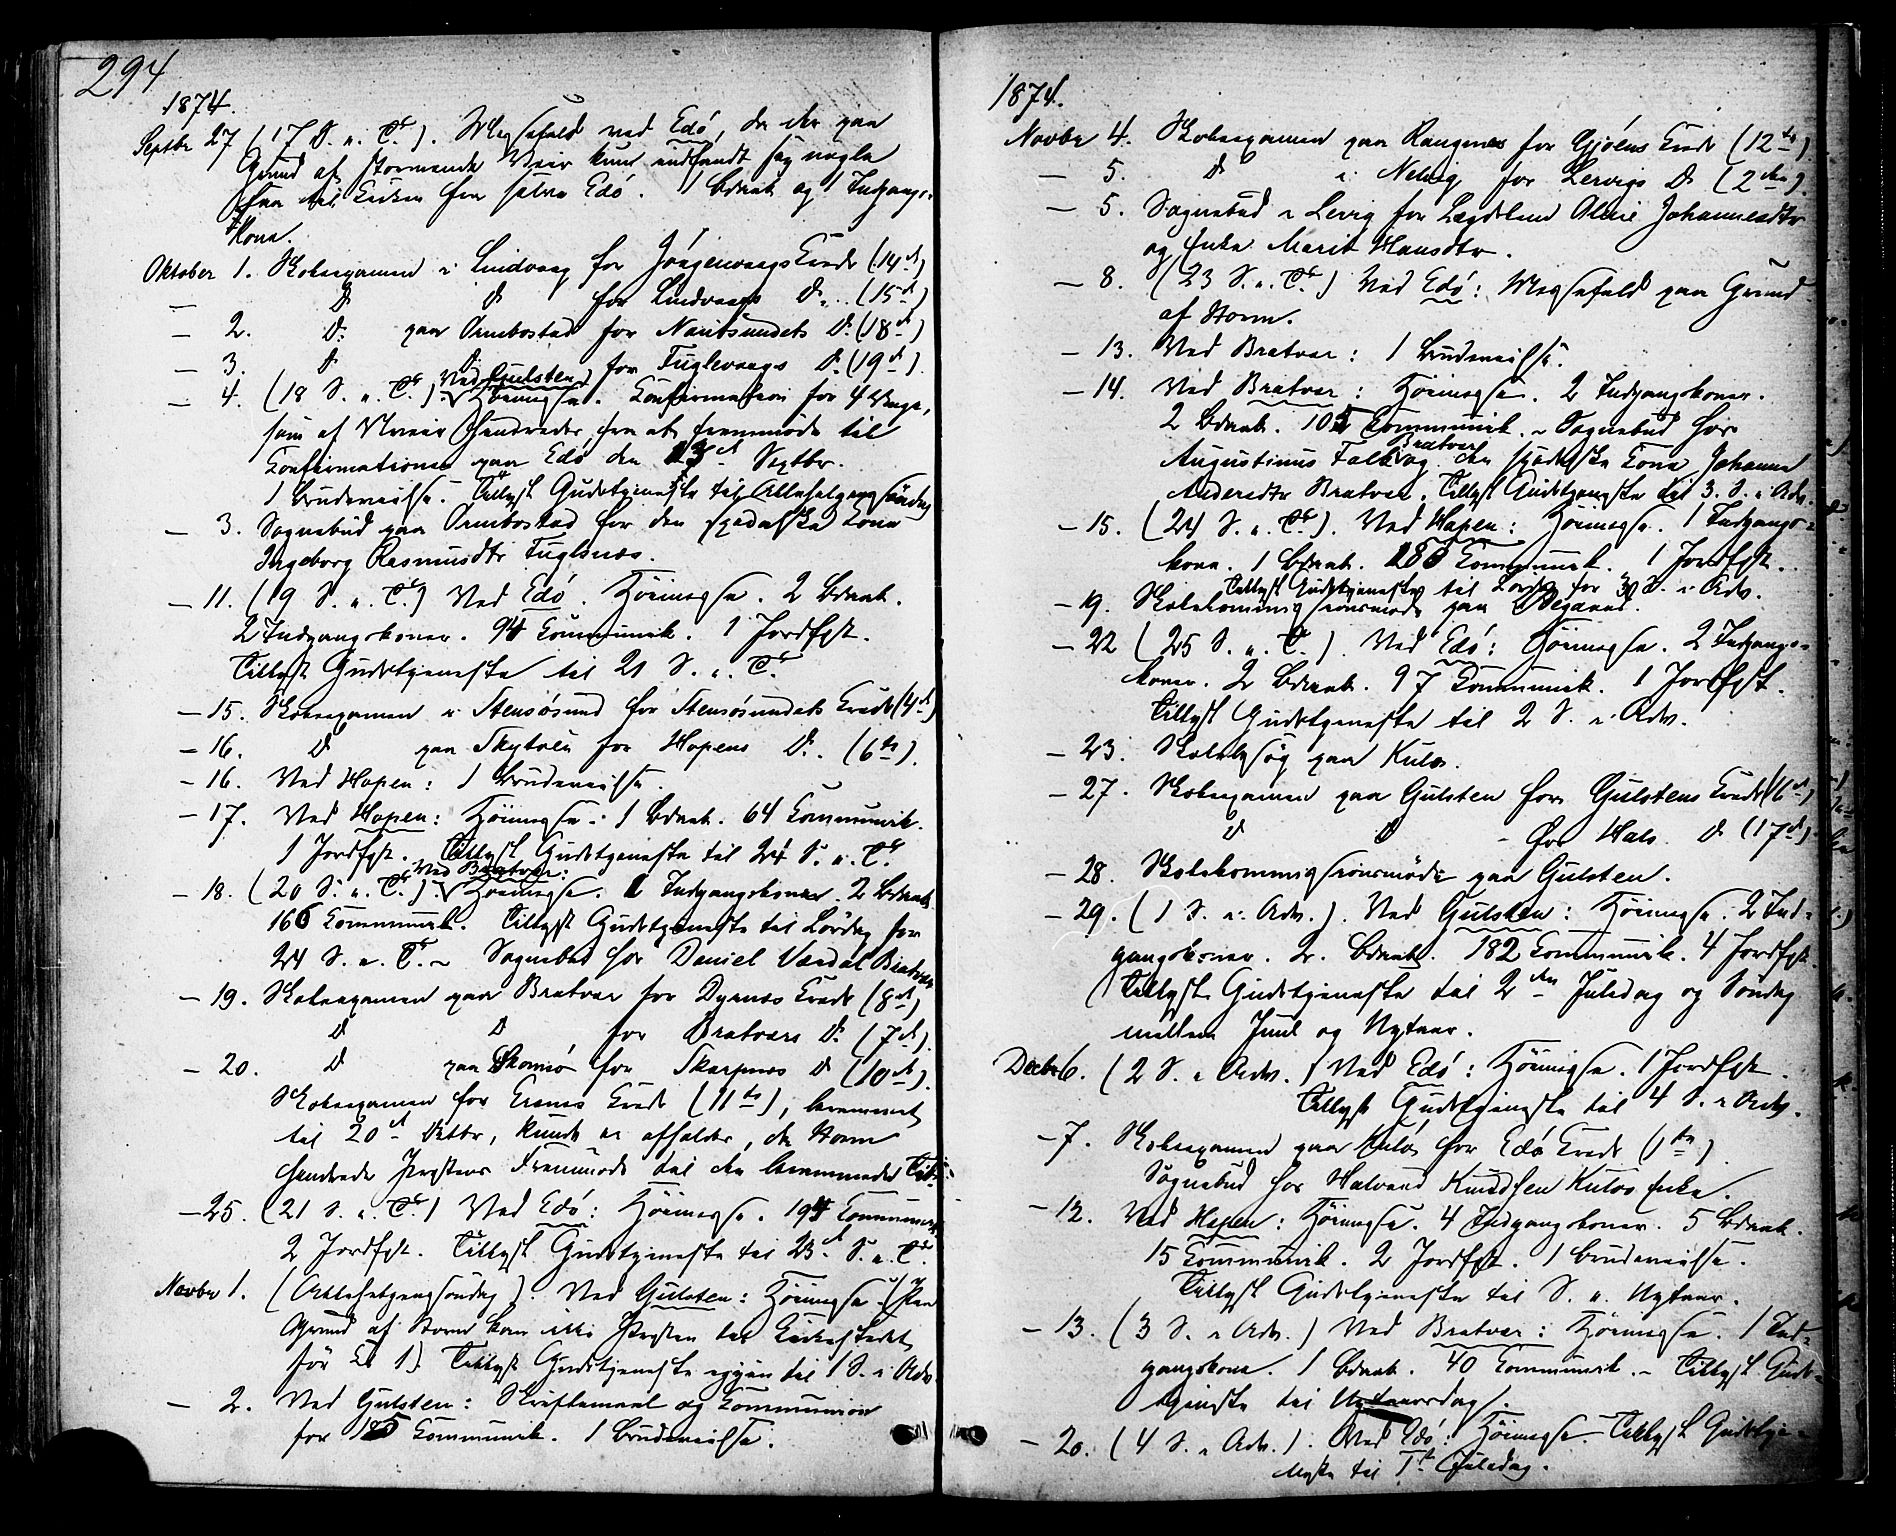 294
1874.
Septbr 27 (17 S. e. Tr.). Messefald ved Edö, da der paa
Grund af stormende Veir kun indfandt sig nogle
faa til Kirken fra selve Edö. 1 Bdaab og 1 Indgangs-
kone.
Oktober 1. Skoleexamen i Lindvaag for Jörgenvaags Kreds (14de)
— Do Do for Lindvaags Do. (15de)
— 2. Do paa Ormbostad for Navitsundets Do. (18de)
— 3. Do Do for Fuglevaags Do. (19de)
— 4. (18 S. e. Tr.). Ved Gulsten: Höimesse. Confirmation for 4 Unge,
som af Uveir hindredes fra at fremmöde til
Confirmationen paa Edö den 13de Septbr.
1 Brudevielse. Tillyst Gudstjeneste til Allehelgenssöndag
— 3. Sognebud paa Ormbostad for den spedalske Kone
Ingeborg Rasmusdtr Fuglsnes.
— 11. (19 S. e. Tr.) Ved Edö. Höimesse. 2 Bdaab.
2 Indgangskoner. 94 Communik. 1 Jordfst.
Tillyst Gudstjeneste til 21 S. e. Tr.
— 15. Skoleexamen i Stensösund for Stensösundets Kreds (4de)
— 16. Do paa Skytvei for Hopens Do. (6te).
— 16. Ved Hopen: 1 Brudevielse.
— 17. Ved Hopen: Höimesse. 1 Bdaab. 64 Communik.
1 Jordfst. Tillyst Gudstjeneste til 24 S. e. Tr.
— 18. (20 S. e. Tr.). Ved Bratvær: Höimesse. 2 Bdaab.
166 Communik. Tillyst Gudstjeneste til Lördag för
24 S. e. Tr. – Sognebud hos Daniel Værdal Bratvær
— 19. Skoleexamen paa Bratvær for Dyrnes Kreds (8de)
Do Do for Bratværs Do. (7de).
— 20. Do paa for Skarpnes Do (10de).
Skoleexamen for Kreds (11te), berammet
til 20de Oktbr, kunde ei afholdes, da Storm
hindrede Prestens Fremmöde til den berammede Tid.
— 25. (21 S. e. Tr.) Ved Edö: Höimesse. 194 Communik.
2 Jordfst. Tillyst Gudstjeneste til 23de S. e. Tr.
Novbr 1. (Allehelgenssöndag). Ved Gulsten: Höimesse (Paa
Grund af Storm kom ikke Presten til Kirkestedet
för Kl 1). Tillyst Gudstjeneste igjen til 1 S. i Adv.
— 2. Ved Gulsten: Skriftemaal og Communion
for 185 Communik. 1 Brudevielse.
1874.
Novbr 4. Skoleexamen paa Rangnes for Gjöens Kreds (12te)
— 5. Do i Nelvig for Lervigs Do (2den).
— 5. Sognebud i Levig for Lægdslem Oline Johannesdtr
og Enke Marit Hansdtr.
— 8. (23 S. e. Tr.) Ved Edö: Messefald paa Grund
af Storm.
— 13. Ved Bratvær: 1 Brudevielse.
— 14. Ved Bratvær: Höimesse. 2 Indgangskoner.
2 Bdaab. 105 Communik. – Sognebud hos
Augustinus Falk Bratvær og den spedalske Kone Johanna
Andersdtr Bratvær. Tillyst Gudstjeneste til 3. S. i Adv.
— 15. (24 S. e. Tr.). Ved Hopen: Höimesse. 1 Indgangs-
kone. 1 Bdaab. 186 Communik. 1 Jordfst.
Tillyst Gudstjeneste til Lördag för 3 S. i Adv.
— 19. Skolekommissionsmöde paa
— 22 (25 S. e. Tr.). Ved Edö: Höimesse. 2 Indgangs-
koner. 2 Bdaab. 97 Communik. 1 Jordfst.
Tillyst Gudstjeneste til 2 S. i Adv.
— 23. Skolebesög paa Kulö.
— 27. Skoleexamen paa Gulsten for Gulstens Kreds (16de)
Do Do – for Hals Do (17de)
— 28. Skolekommissionsmöde paa Gulsten.
— 29. (1 S. i Adv.). Ved Gulsten: Höimesse. 2 Ind-
gangskoner. 2 Bdaab. 182 Communik. 4 Jordfst.
Tillyst Gudstjeneste til 2den Juledag og Söndag
mellem Juul og Nytaar.
Decbr 6. (2 S. i Adv.) Ved Edö: Höimesse. 1 Jordfst.
Tillyst Gudstjeneste til 4 S. i Adv.
— 7. Skoleexamen paa Kulö for Edö Kreds (1ste)
Sognebud hos Halvard Knudsen Kulös Enke.
— 12. Ved Hopen: Höimesse. 4 Indgangskoner. 5 Bdaab.
15 Communik. 2 Jordfst. 1 Brudevielse.
Tillyst Gudstjeneste til S. e. Nytaar.
— 13. (3 S. i Adv.) Ved Bratvær: Höimesse. 1 Ind-
gangskone. 1 Bdaab. 40 Communik. – Tillyst Guds-
tjeneste til Nytaarsdag.
— 20. (4 S. i Adv.). Ved Edö: Höimesse. Tillyst Gudstje-
neste til 1ste Juledag.